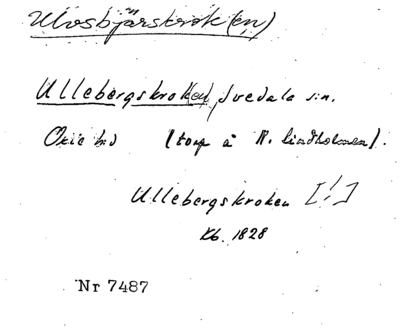 Ulvsbjärskrok(en)
Ullebergskrok(en) Svedala sn.
Oxie hd (torp å N. Lindholmen).
Ullebergskroken [!]
Kb. 1828
Nr 7487